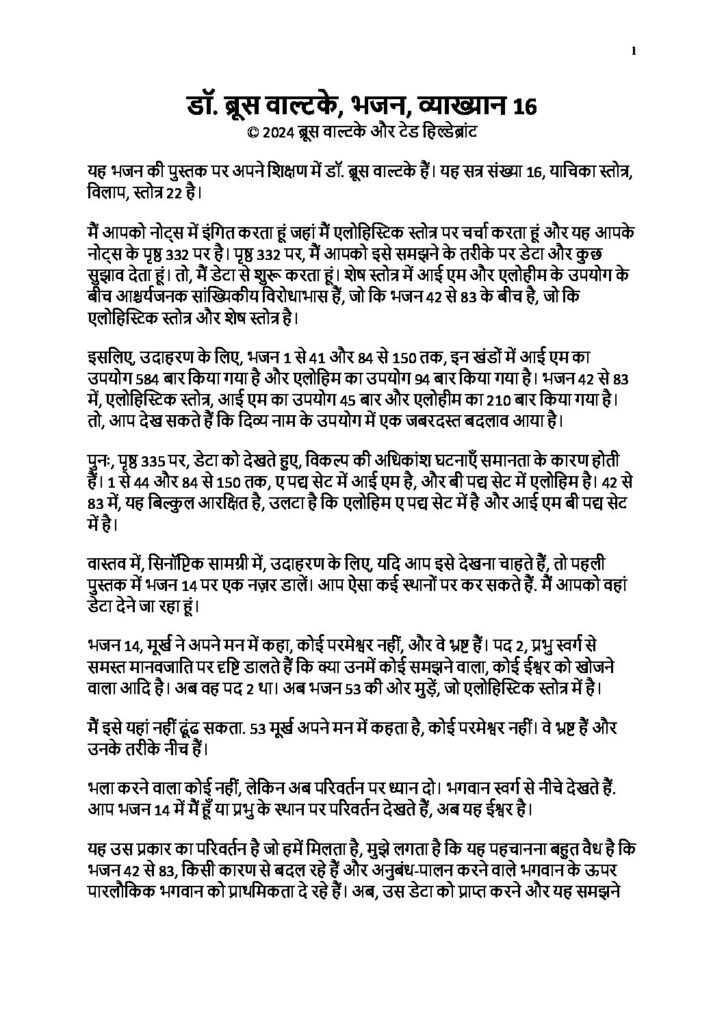 1
डॉ. ब्रूस वाल्टके, भजन, व्याख्यान 16
© 2024 ब्रूस वाल्टके और टेड हिल्डेब्रांट
यह भजन की पुस्तक पर अपने शिक्षण में डॉ. ब्रूस वाल्टके हैं। यह सत्र संख्या 16, याचिका स्तोत्र,
विलाप, स्तोत्र 22 है।
मैं आपको नोट्स में इंगित करता हूं जहां मैं एलोहिस्टिक स्तोत्र पर चर्चा करता हूं और यह आपके
नोट्स के पृष्ठ 332 पर है। पृष्ठ 332 पर, मैं आपको इसे समझने के तरीके पर डेटा और कुछ
सुझाव देता हूं। तो, मैं डेटा से शुरू करता हूं। शेष स्तोत्र में आई एम और एलोहीम के उपयोग के
बीच आश्चर्यजनक सांख्यिकीय विरोधाभास हैं, जो कि भजन 42 से 83 के बीच है, जो कि
एलोहिस्टिक स्तोत्र और शेष स्तोत्र है।
इसलिए, उदाहरण के लिए, भजन 1 से 41 और 84 से 150 तक, इन खंडों में आई एम का
उपयोग 584 बार किया गया है और एलोहिम का उपयोग 94 बार किया गया है। भजन 42 से 83
में, एलोहिस्टिक स्तोत्र, आई एम का उपयोग 45 बार और एलोहीम का 210 बार किया गया है।
तो, आप देख सकते हैं कि दिव्य नाम के उपयोग में एक जबरदस्त बदलाव आया है।
पुनः, पृष्ठ 335 पर, डेटा को देखते हुए, विकल्प की अधिकांश घटनाएँ समानता के कारण होती
हैं। 1 से 44 और 84 से 150 तक, ए पद्य सेट में आई एम है, और बी पद्य सेट में एलोहिम है। 42 से
83 में, यह बिल्कुल आरक्षित है, उलटा है कि एलोहिम ए पद्य सेट में है और आई एम बी पद्य सेट
में है।
वास्तव में, सिनॉप्टिक सामग्री में, उदाहरण के लिए, यदि आप इसे देखना चाहते हैं, तो पहली
पुस्तक में भजन 14 पर एक नज़र डालें। आप ऐसा कई स्थानों पर कर सकते हैं. मैं आपको वहां
डेटा देने जा रहा हूं।
भजन 14, मूर्ख ने अपने मन में कहा, कोई परमेश्वर नहीं, और वे भ्रष्ट हैं। पद 2, प्रभु स्वर्ग से
समस्त मानवजाति पर दृष्टि डालते हैं कि क्या उनमें कोई समझने वाला, कोई ईश्वर को खोजने
वाला आदि है। अब वह पद 2 था। अब भजन 53 की ओर मुड़ें, जो एलोहिस्टिक स्तोत्र में है।
मैं इसे यहां नहीं ढूंढ सकता. 53 मूर्ख अपने मन में कहता है, कोई परमेश्वर नहीं। वे भ्रष्ट हैं और
उनके तरीके नीच हैं।
भला करने वाला कोई नहीं, लेकिन अब परिवर्तन पर ध्यान दो। भगवान स्वर्ग से नीचे देखते हैं.
आप भजन 14 में मैं हूँ या प्रभु के स्थान पर परिवर्तन देखते हैं, अब यह ईश्वर है।
यह उस प्रकार का परिवर्तन है जो हमें मिलता है, मुझे लगता है कि यह पहचानना बहुत वैध है कि
भजन 42 से 83, किसी कारण से बदल रहे हैं और अनुबंध-पालन करने वाले भगवान के ऊपर
पारलौकिक भगवान को प्राथमिकता दे रहे हैं। अब, उस डेटा को प्राप्त करने और यह समझने